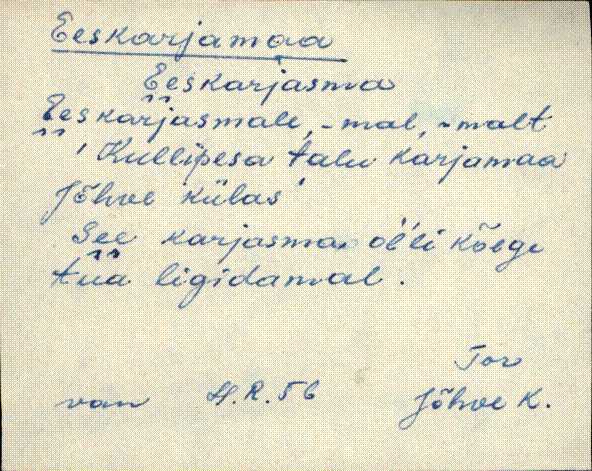 Eeskarjamaa
Eeskarjasma
Eeskarjasmale, -mal, -malt
'Kullipesa talu karjamaa
Jõhve külas'
See karjasma ol'li kõege
tüa ligidamal.
Tor
van H.R.56 Jõhve K.